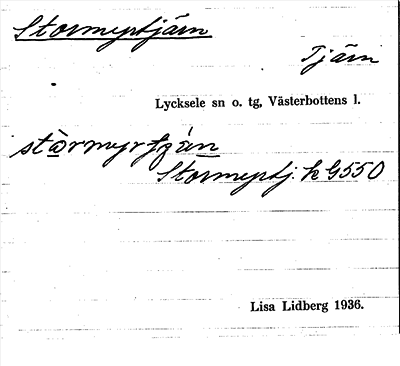 Stormyrtjärn
Tjärn
Lycksele sn o. tg, Västerbottens l.
stòrmyrtjän
Stormyrtj. k G550
Lisa Lidberg 1936.